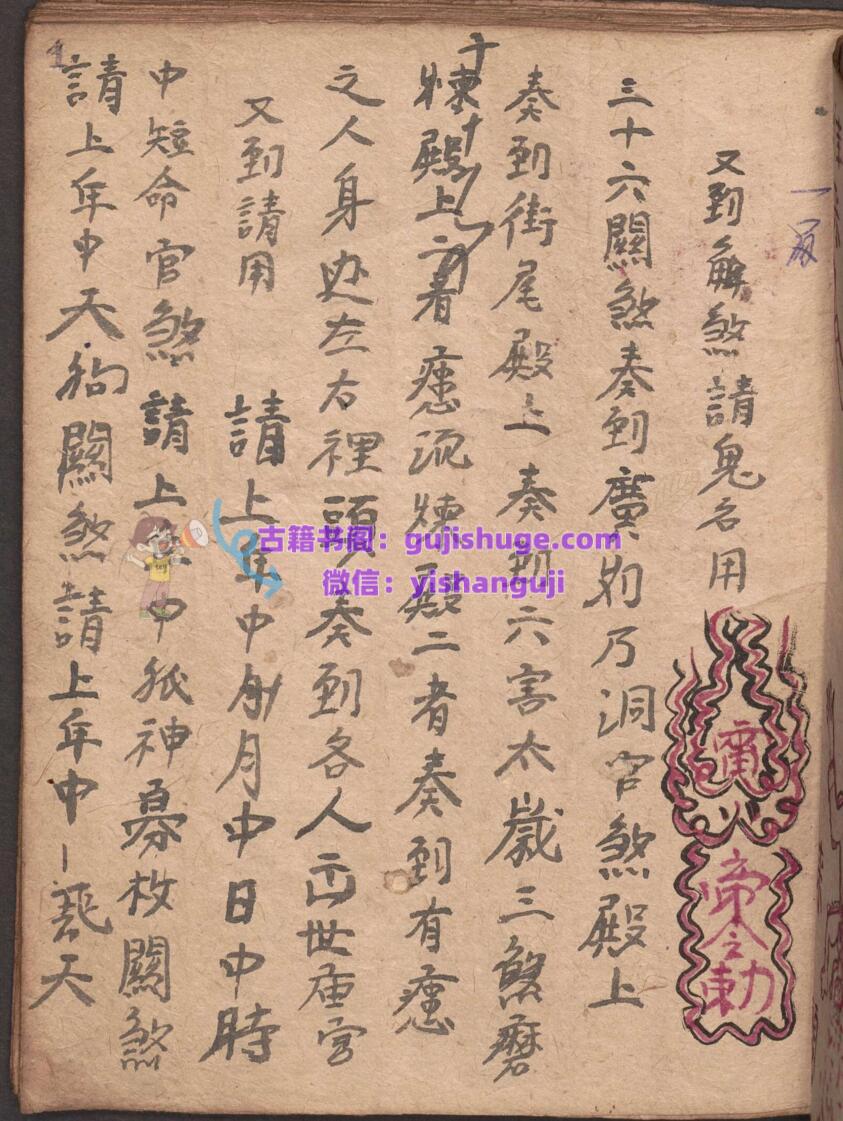 又到解煞請鬼名用
三十六關煞奏到廣州乃洞宮煞殿上
奏到街尾殿上奏到六害太歲三煞磨
煉殿上二者瘟流煉殿二者奏到有瘟
之人身边左右裡頭奏到各人出世庙宮
又到請用
請上年中月中日中時
中短命官煞請上年中狐神募枚關煞
請上年中天狗關煞請上年中天
帝令敕
古籍书阁：gujishuge.com
微信：yishanguji
1